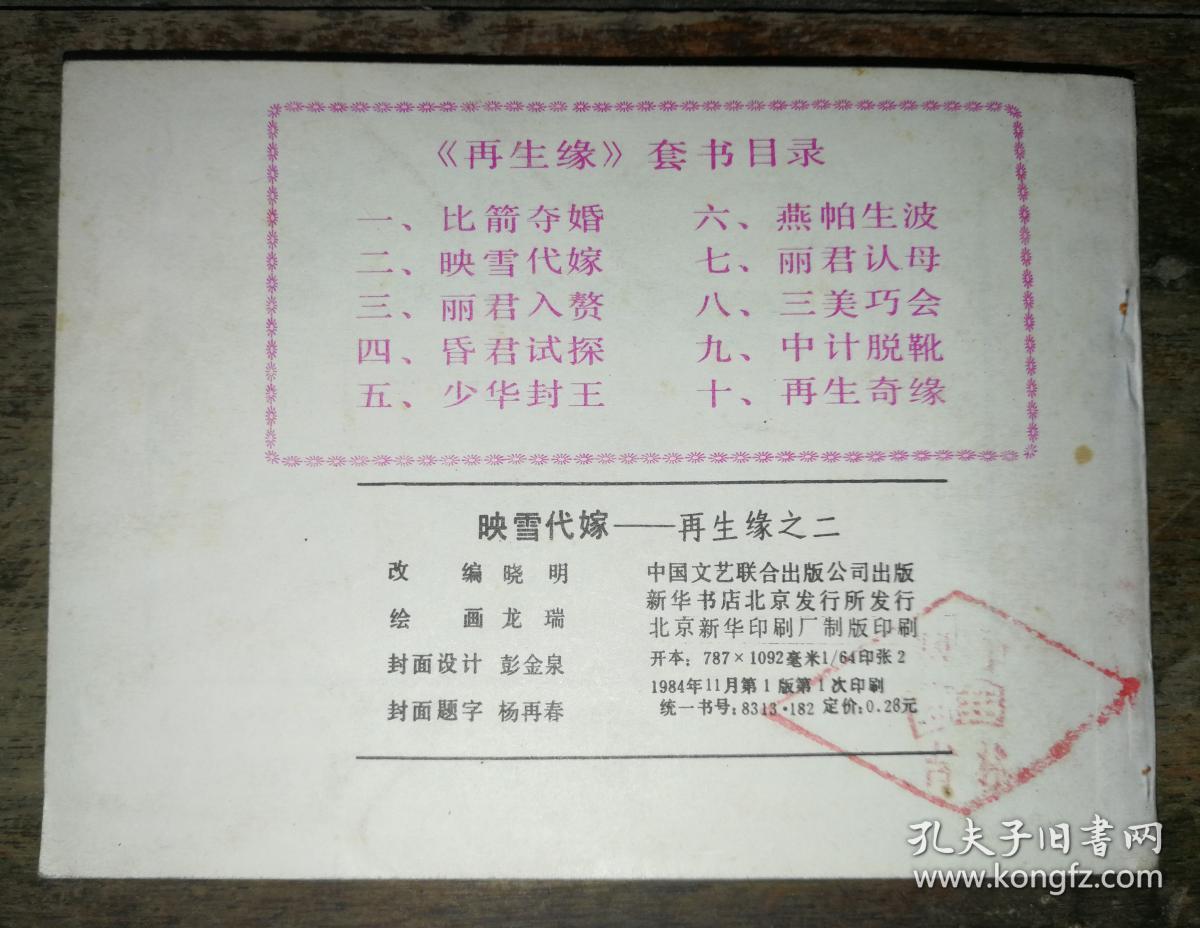 《再生缘》套书目录
一、比箭夺婚
二、映雪代嫁
三、丽君入赘
四、昏君试探
五、少华封王
六、燕帕生波
七、丽君认母
八、三美巧会
九、中计脱靴
十、再生奇缘
映雪代嫁——再生缘之二
改 编 晓 明
绘 画 龙 瑞
封面设计 彭金泉
封面题字 杨再春
中国文艺联合出版公司出版
新华书店北京发行所发行
北京新华印刷厂制版印刷
开本：787×1092毫米1/64印张2
1984年11月第1版第1次印刷
统一书号：8313·182 定价：0.28元
孔夫子旧书网
www.kongfz.com